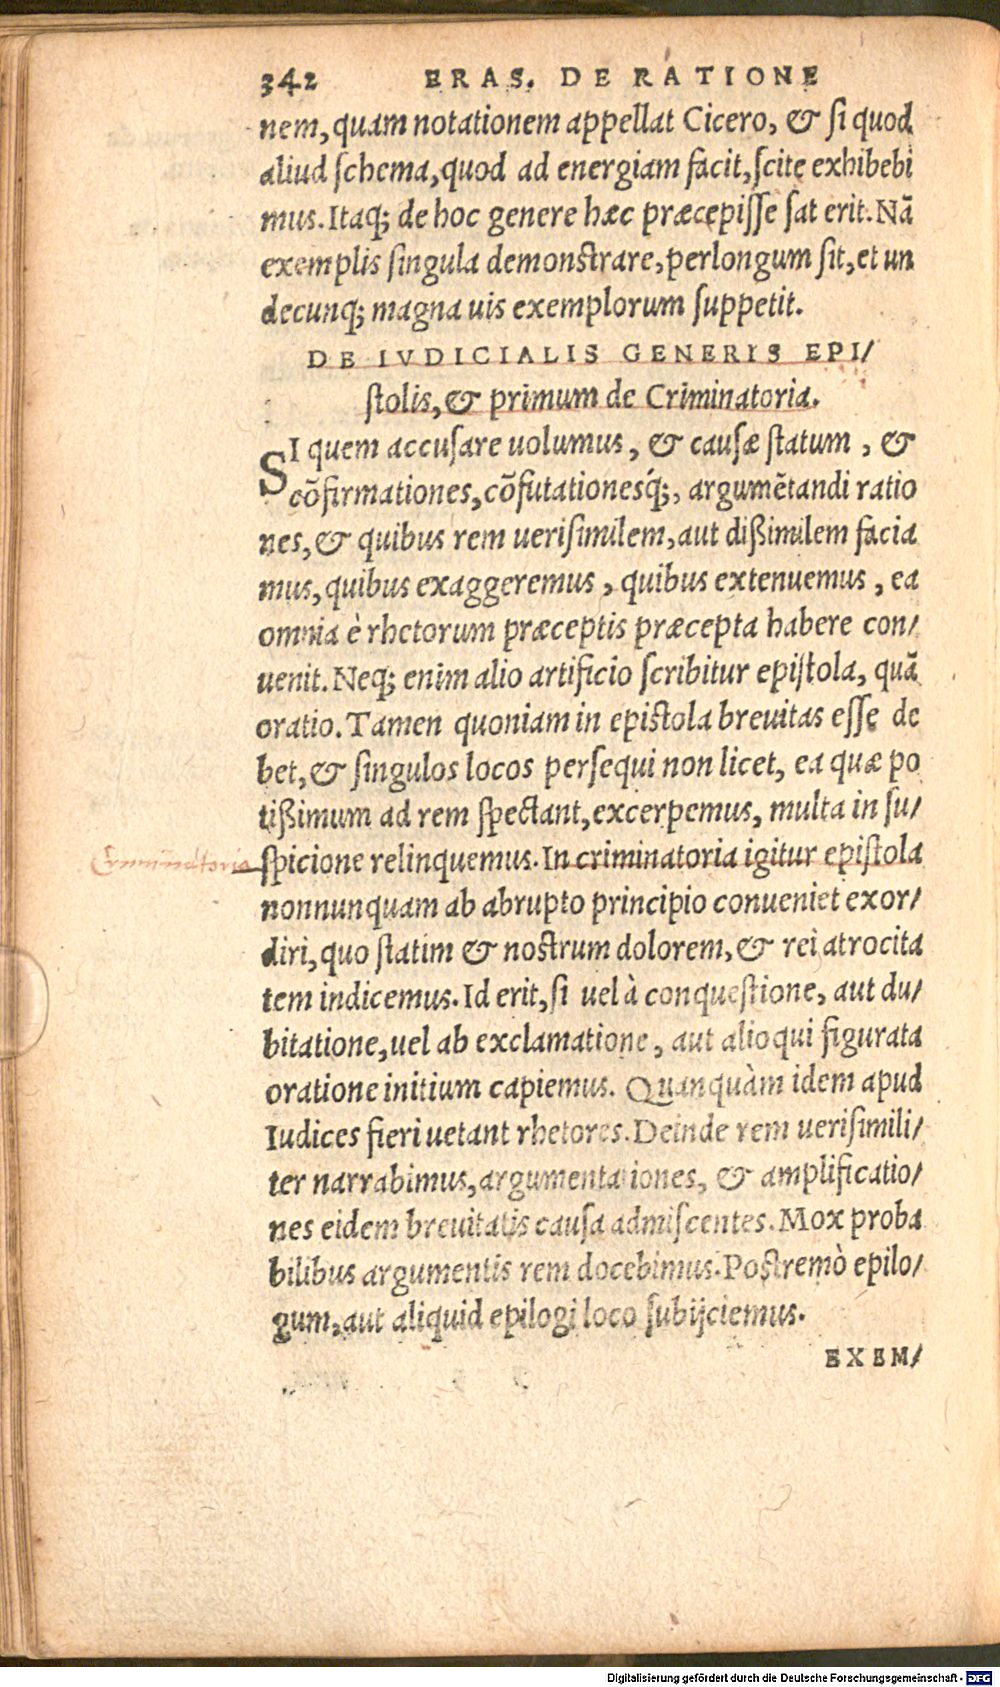 342 ERAS. DE RATIONE
nem, quam notationem appellat Cicero, & si quod
aliud schema, quod ad energiam facit, scite exhibebi
mus. Itaq; de hoc genere hæc præcepisse sat erit. Nã
exemplis singula demonstrare, perlongum sit, et un
decunq; magna uis exemplorum suppetit.
DE IVDICIALIS GENERIS EPI/
stolis, & primum de Criminatoria.
SI quem accusare uolumus, & causæ statum, &
cõfirmationes, cõfutationesq́;, argumẽtandi ratio
nes, & quibus rem uerisimilem, aut dißimilem facia
mus, quibus exaggeremus, quibus extenuemus, ea
omnia è rhetorum præceptis præcepta habere con/
uenit. Neq; enim alio artificio scribitur epistola, quã
oratio. Tamen quoniam in epistola breuitas esse de
bet, & singulos locos persequi non licet, ea quæ po
tißimum ad rem spectant, excerpemus, multa in su/
Criminatoria
spicione relinquemus. In criminatoria igitur epistola
nonnunquam ab abrupto principio conueniet exor/
diri, quo statim & nostrum dolorem, & rei atrocita
tem indicemus. Id erit, si uel à conquestione, aut du/
bitatione, uel ab exclamatione, aut alioqui figurata
oratione initium capiemus. Quanquàm idem apud
Iudices fieri uetant rhetores. Deinde rem uerisimili/
ter narrabimus, argumentationes, & amplificatio/
nes eidem breuitatis causa admiscentes. Mox proba
bilibus argumentis rem docebimus. Postremò epilo/
gum, aut aliquid epilogi loco subijciemus.
EXEM/
Digitalisierung gefördert durch die Deutsche Forschungsgemeinschaft - DFG